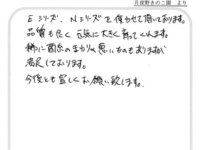 月夜野きのこ園 より
Eシリーズ、Nシリーズを使わせて頂いております。
品質も良く元気に大きく育ってくれます。
稀に菌糸のまわりの悪いものもありますが
満足しております。
今後とも宜しくお願い致します。